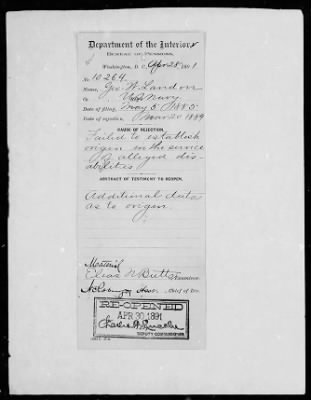 Department of the Interior,
BUREAU OF PENSIONS,
Washington, D. C., Apr 28, 1891
No. 10264
Name, Geo. W. Landon
Co. U.S. Navy
Date of filing, May 5, 1885
Date of rejection, Mar 20 1889
CAUSE OF REJECTION.
Failed to establish
origin in the service
of alleged dis-
abilities.
ABSTRACT OF TESTIMONY TO REOPEN.
Additional data
as to origin.
Material
Elias W. Butts, Examiner.
Chief of Div.
RE-OPENED
APR 30 1891
DEPUTY COMMISSIONER.